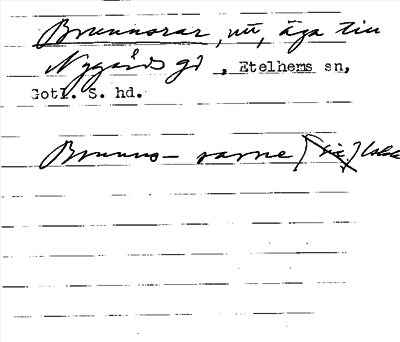 Brunnsrar, nu, äga till
Nygårds gd, Etelhems sn,
Gotl. S. hd.
Brunns-rarne [sic]